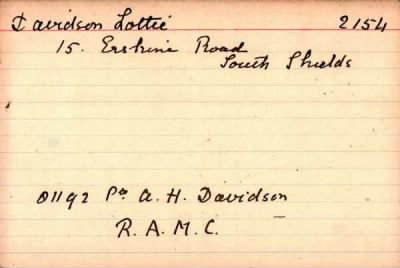 Davidson Lottie 2154
15. Erskine Road
South Shields
01192 Pte A. H. Davidson
R. A. M. C.